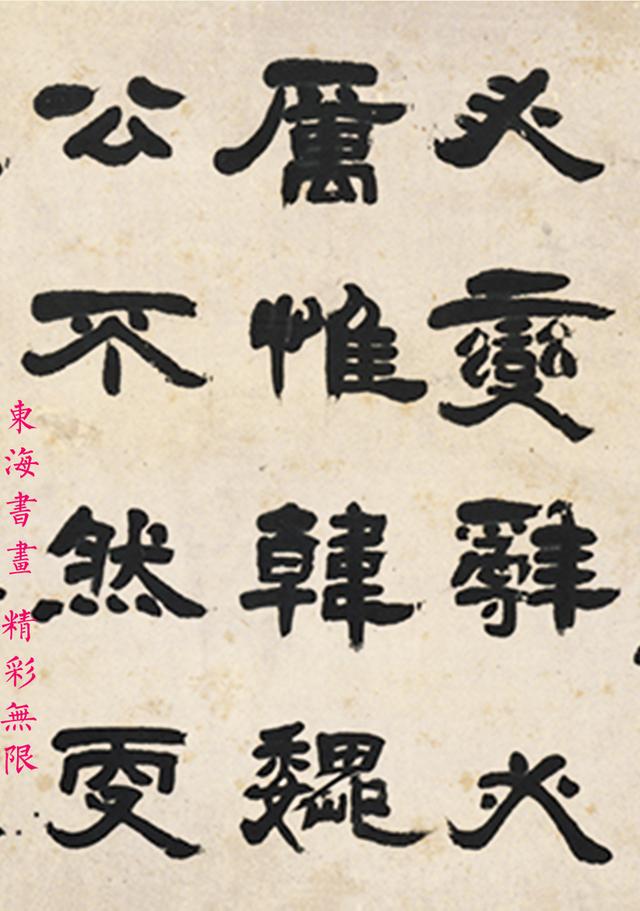 必變辭必
厲惟韓魏
公不然更
東海書畫 精彩無限